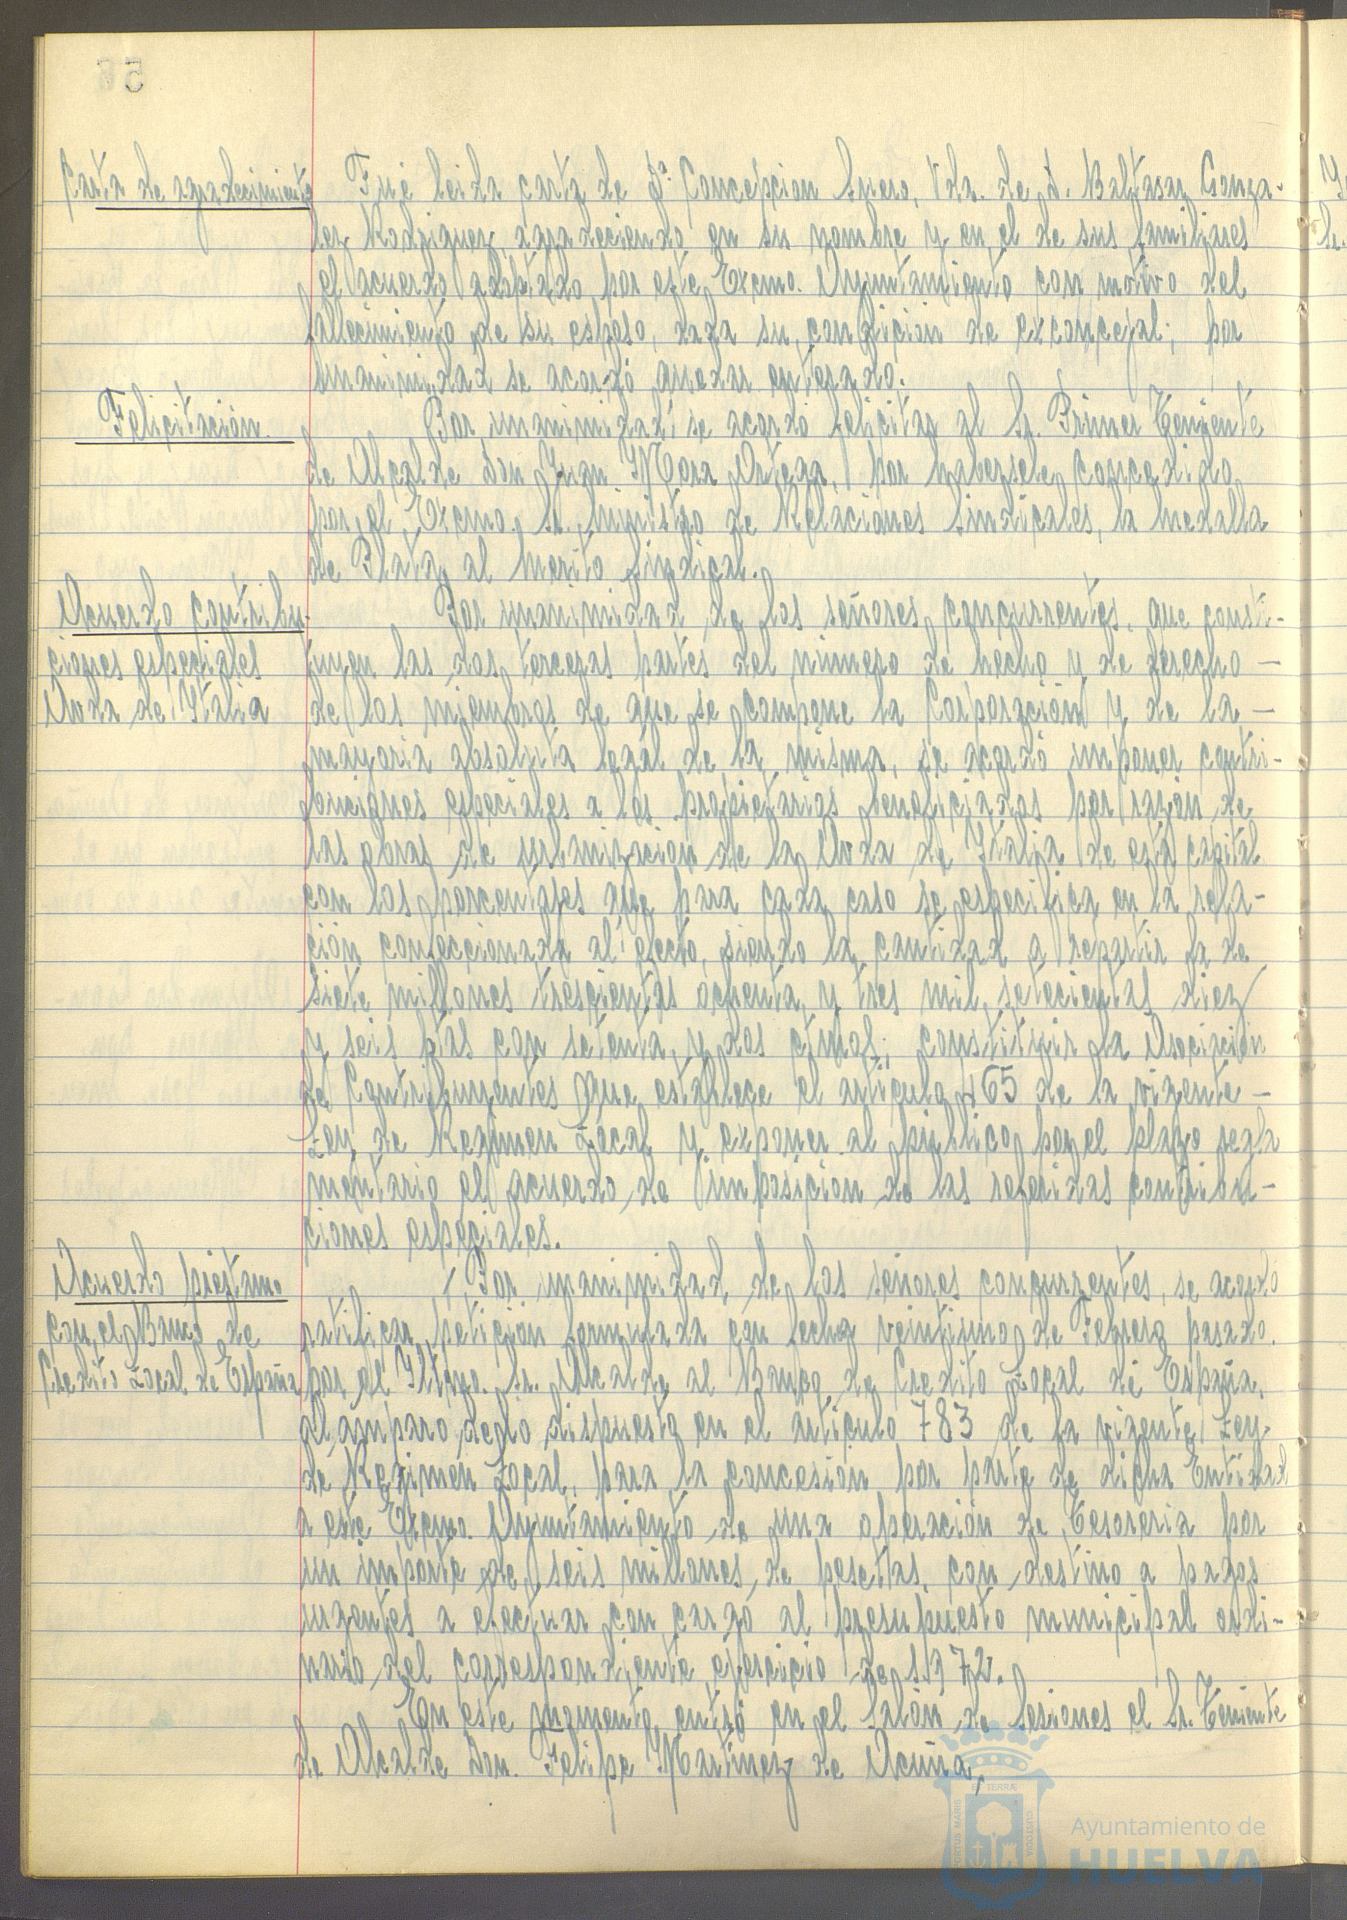 Carta de agradecimiento
Fué leida carta de Dª. Concepcion Suero, Vda. de D. Baltasar Gonza-
lez Rodriguez agradeciendo en su nombre y en el de sus familiares
el acuerdo adoptado por este Excmo. Ayuntamiento con motivo del
fallecimiento de su esposo, dada su condicion de exconcejal; por
unanimidad se acordó quedar enterado.
Felicitación.
Por unanimidad se acordó felicitar al Sr. Primer Teniente
de Alcalde Don Juan Mora Ortega, por habersele concedido
por el Excmo. Sr. Ministro de Relaciones Sindicales, la Medalla
de Plata al Merito Sindical.
Acuerdo contribu-
ciones especiales
Avda de Italia
Por unanimidad de los señores concurrentes, que consti-
tuyen las dos terceras partes del número de hecho y de derecho —
de los miembros de que se compone la Corporación y de la —
mayoria absoluta legal de la misma, se acordó imponer contri-
buciones especiales a los propietarios beneficiados por razón de
las obras de urbanización de la Avda de Italia de esta capital
con los porcentajes que para cada caso se especifica en la rela-
ción confeccionada al efecto, siendo la cantidad a repartir la de
siete millones trescientas ochenta y tres mil setecientas diez
y seis ptas con setenta y dos ctmos; constituir la Asociación
de Contribuyentes que establece el articulo 465 de la vigente —
Ley de Regimen Local y exponer al público por el plazo regla
mentario el acuerdo de imposición de las referidas contribu-
ciones especiales.
Acuerdo préstamo
con el Banco de
Credito Local de España
Por unanimidad de los señores concurrentes, se acordó
ratificar petición formulada con fecha veintiuno de Febrero pasado.
por el Iltmo. Sr. Alcalde al Banco de Credito Local de España,
al amparo de lo dispuesto en el articulo 783 de la vigente Ley
de Regimen Local, para la concesión por parte de dicha Entidad
a este Excmo. Ayuntamiento de una operación de Tesoreria por
un importe de seis millones de pesetas, con destino a pagos
urgentes a efectuar con cargo al presupuesto municipal ordi-
nario del correspondiente ejercicio de 1.972.
En este momento entró en el Salón de Sesiones el Sr. Teniente
de Alcalde Don. Felipe Martinez de Acuña,
Ayuntamiento de
HUELVA